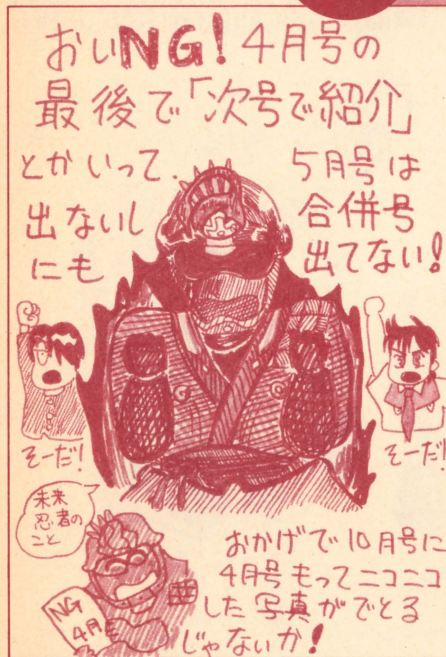 おいNG！4月号の
最後で「次号で紹介」
とかいって、
出ないし
5月号は
合併号
にも
出てない！
そーだ！
そーだ！
未来
忍者の
こと
NG
4月号
おかげで10月号に
4月号もってニコニコ
した写真がでとる
じゃないか！